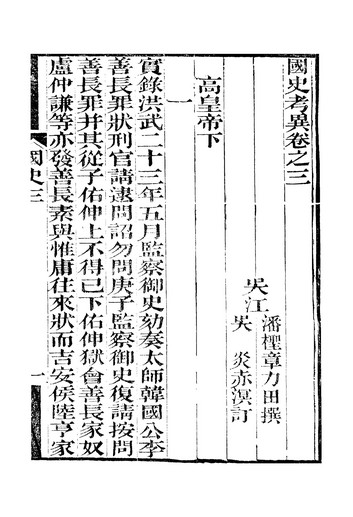 國史考異卷之三
吳江
潘檉章力田撰
吳炎赤溟訂
高皇帝下
一
實錄洪武二十三年五月監察御史劾奏太師韓國公李
善長罪狀刑官請逮問詔勿問庚子監察御史復請按問
善長罪并其從子佑伸上不得已下佑伸獄會善長家奴
盧仲謙等亦發善長素與惟庸往來狀而吉安侯陸亨家
國史三
一